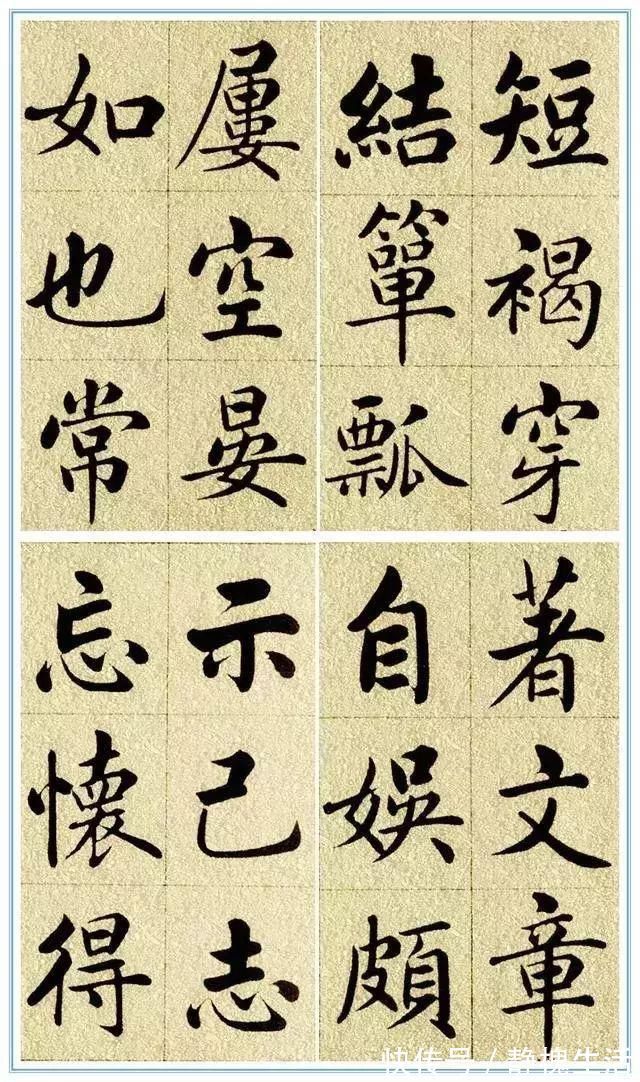 短褐穿
結簞瓢
屢空晏
如也常
著文章
自娛頗
示己志
忘懷得
快传号/静槐生活